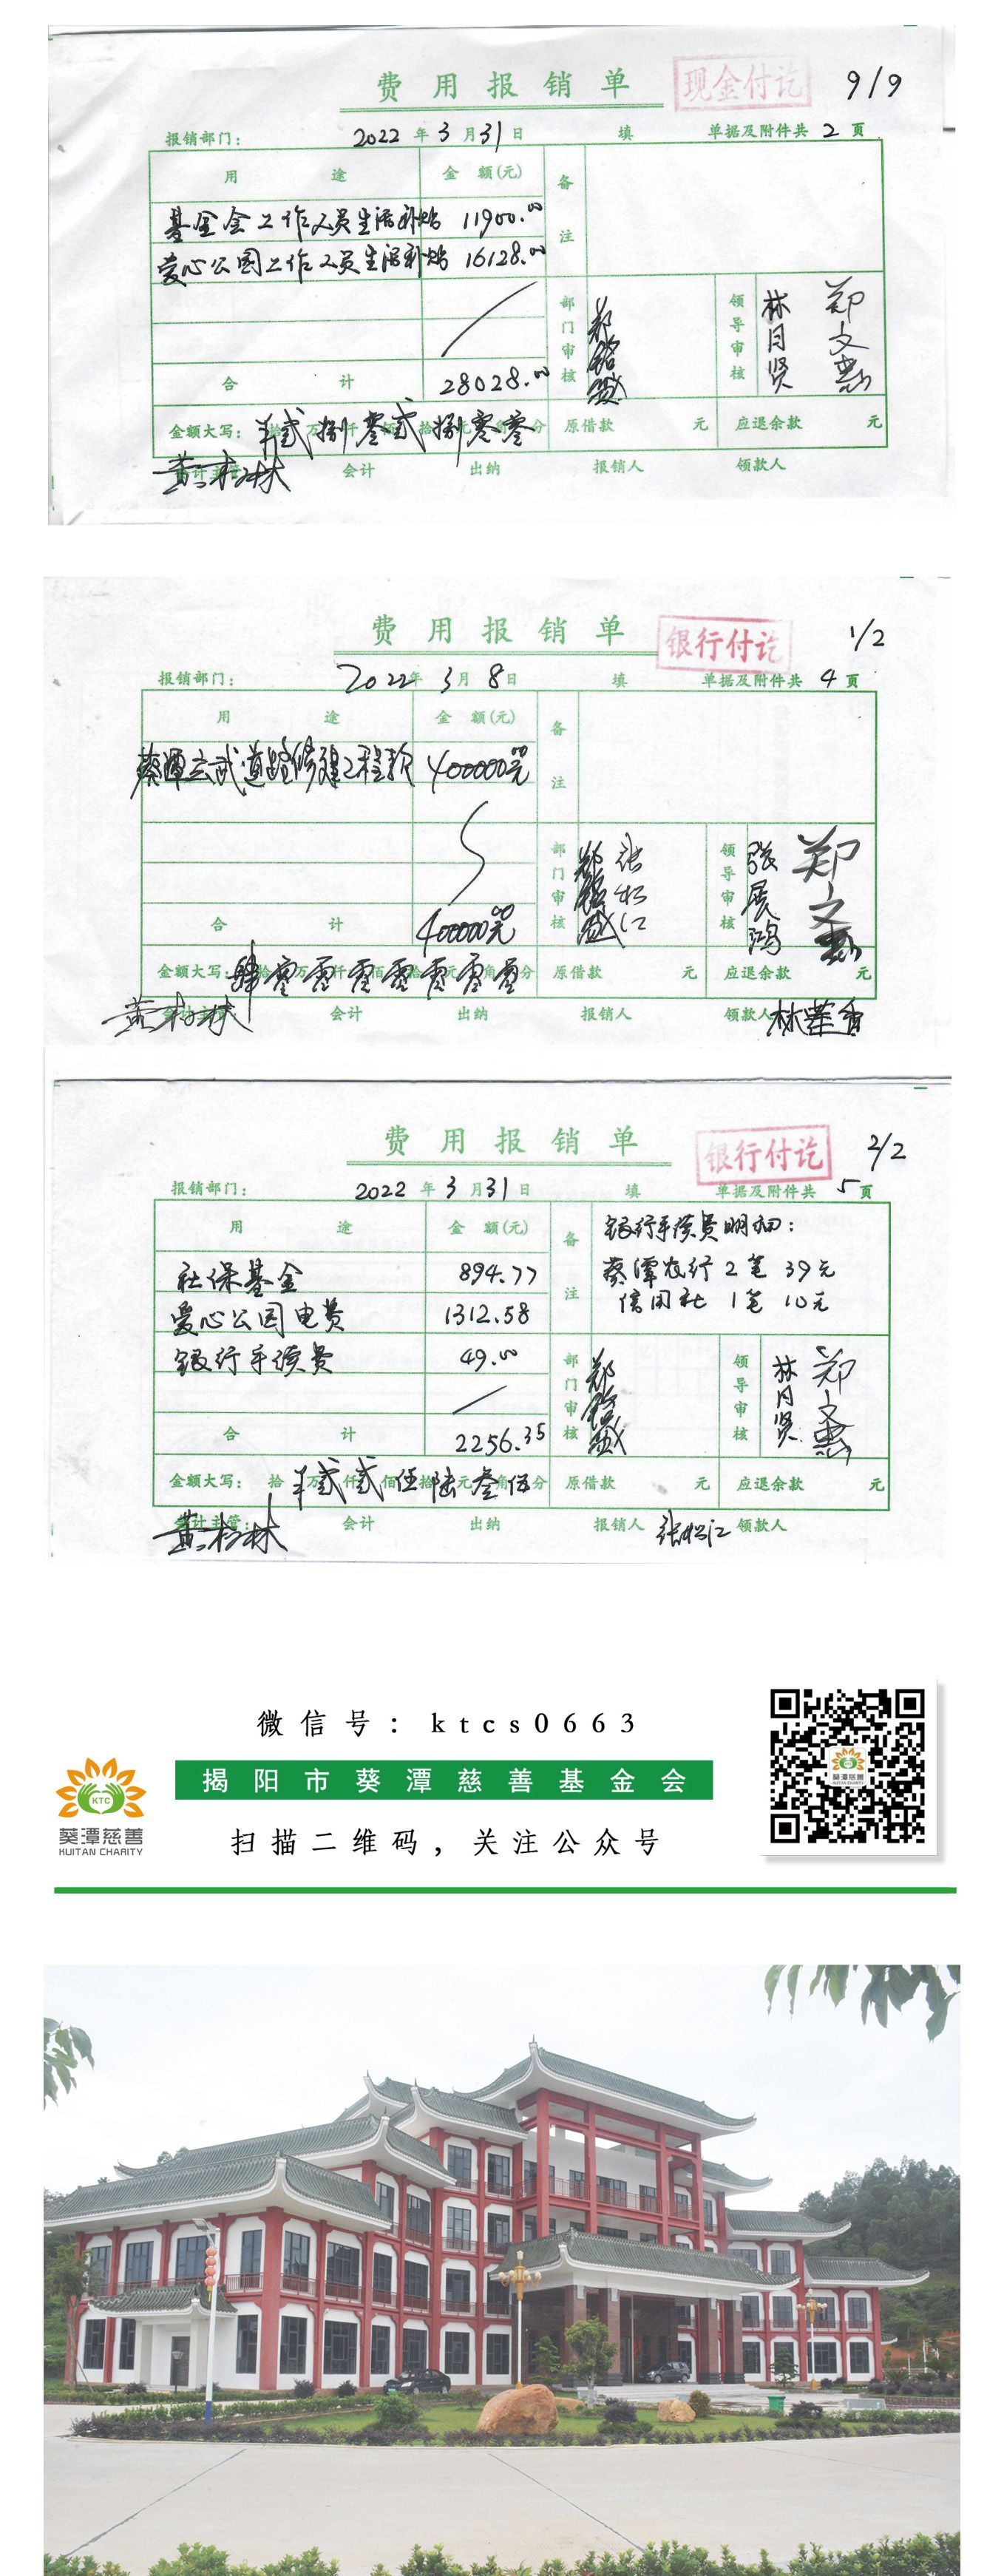 费用报销单 现金付讫 9/9
报销部门: 2022年3月31日 填 单据及附件共2页
用途 金额(元) 备注
基金会工作人员生活补贴 11900.00
爱心公园工作人员生活补贴 16128.00
部门审核 郑 领导审核 林月贤 郑文惠
合计 28028.00
金额大写: 拾 ¥贰万捌仟零佰贰拾捌元零角零分 原借款 元 应退余款 元
会计主管 黄柏林 会计 出纳 报销人 领款人
费用报销单 银行付讫 1/2
报销部门: 2022年3月8日 填 单据及附件共4页
用途 金额(元) 备注
葵潭玄武道路修建工程款 400000.00元
部门审核 郑 张松江 领导审核 张展鸿 郑文惠
合计 400000.00元
金额大写: 肆拾零万零仟零佰零拾零元零角零分 原借款 元 应退余款 元
会计主管 黄柏林 会计 出纳 报销人 领款人 林
费用报销单 银行付讫 2/2
报销部门: 2022年3月31日 填 单据及附件共5页
用途 金额(元) 备注 银行手续费明细:
社保基金 894.77 葵潭农行2笔39元
爱心公园电费 1312.58 信用社1笔10元
银行手续费 49.00
部门审核 郑 领导审核 林月贤 郑文惠
合计 2256.35
金额大写: 拾 万¥贰仟贰佰伍拾陆元叁角伍分 原借款 元 应退余款 元
会计主管: 黄柏林 会计 出纳 报销人 张松江 领款人
微信号: ktcs0663
揭阳市葵潭慈善基金会
扫描二维码,关注公众号
KTC
葵潭慈善
KUITAN CHARITY
葵潭慈善
KUITAN CHARITY